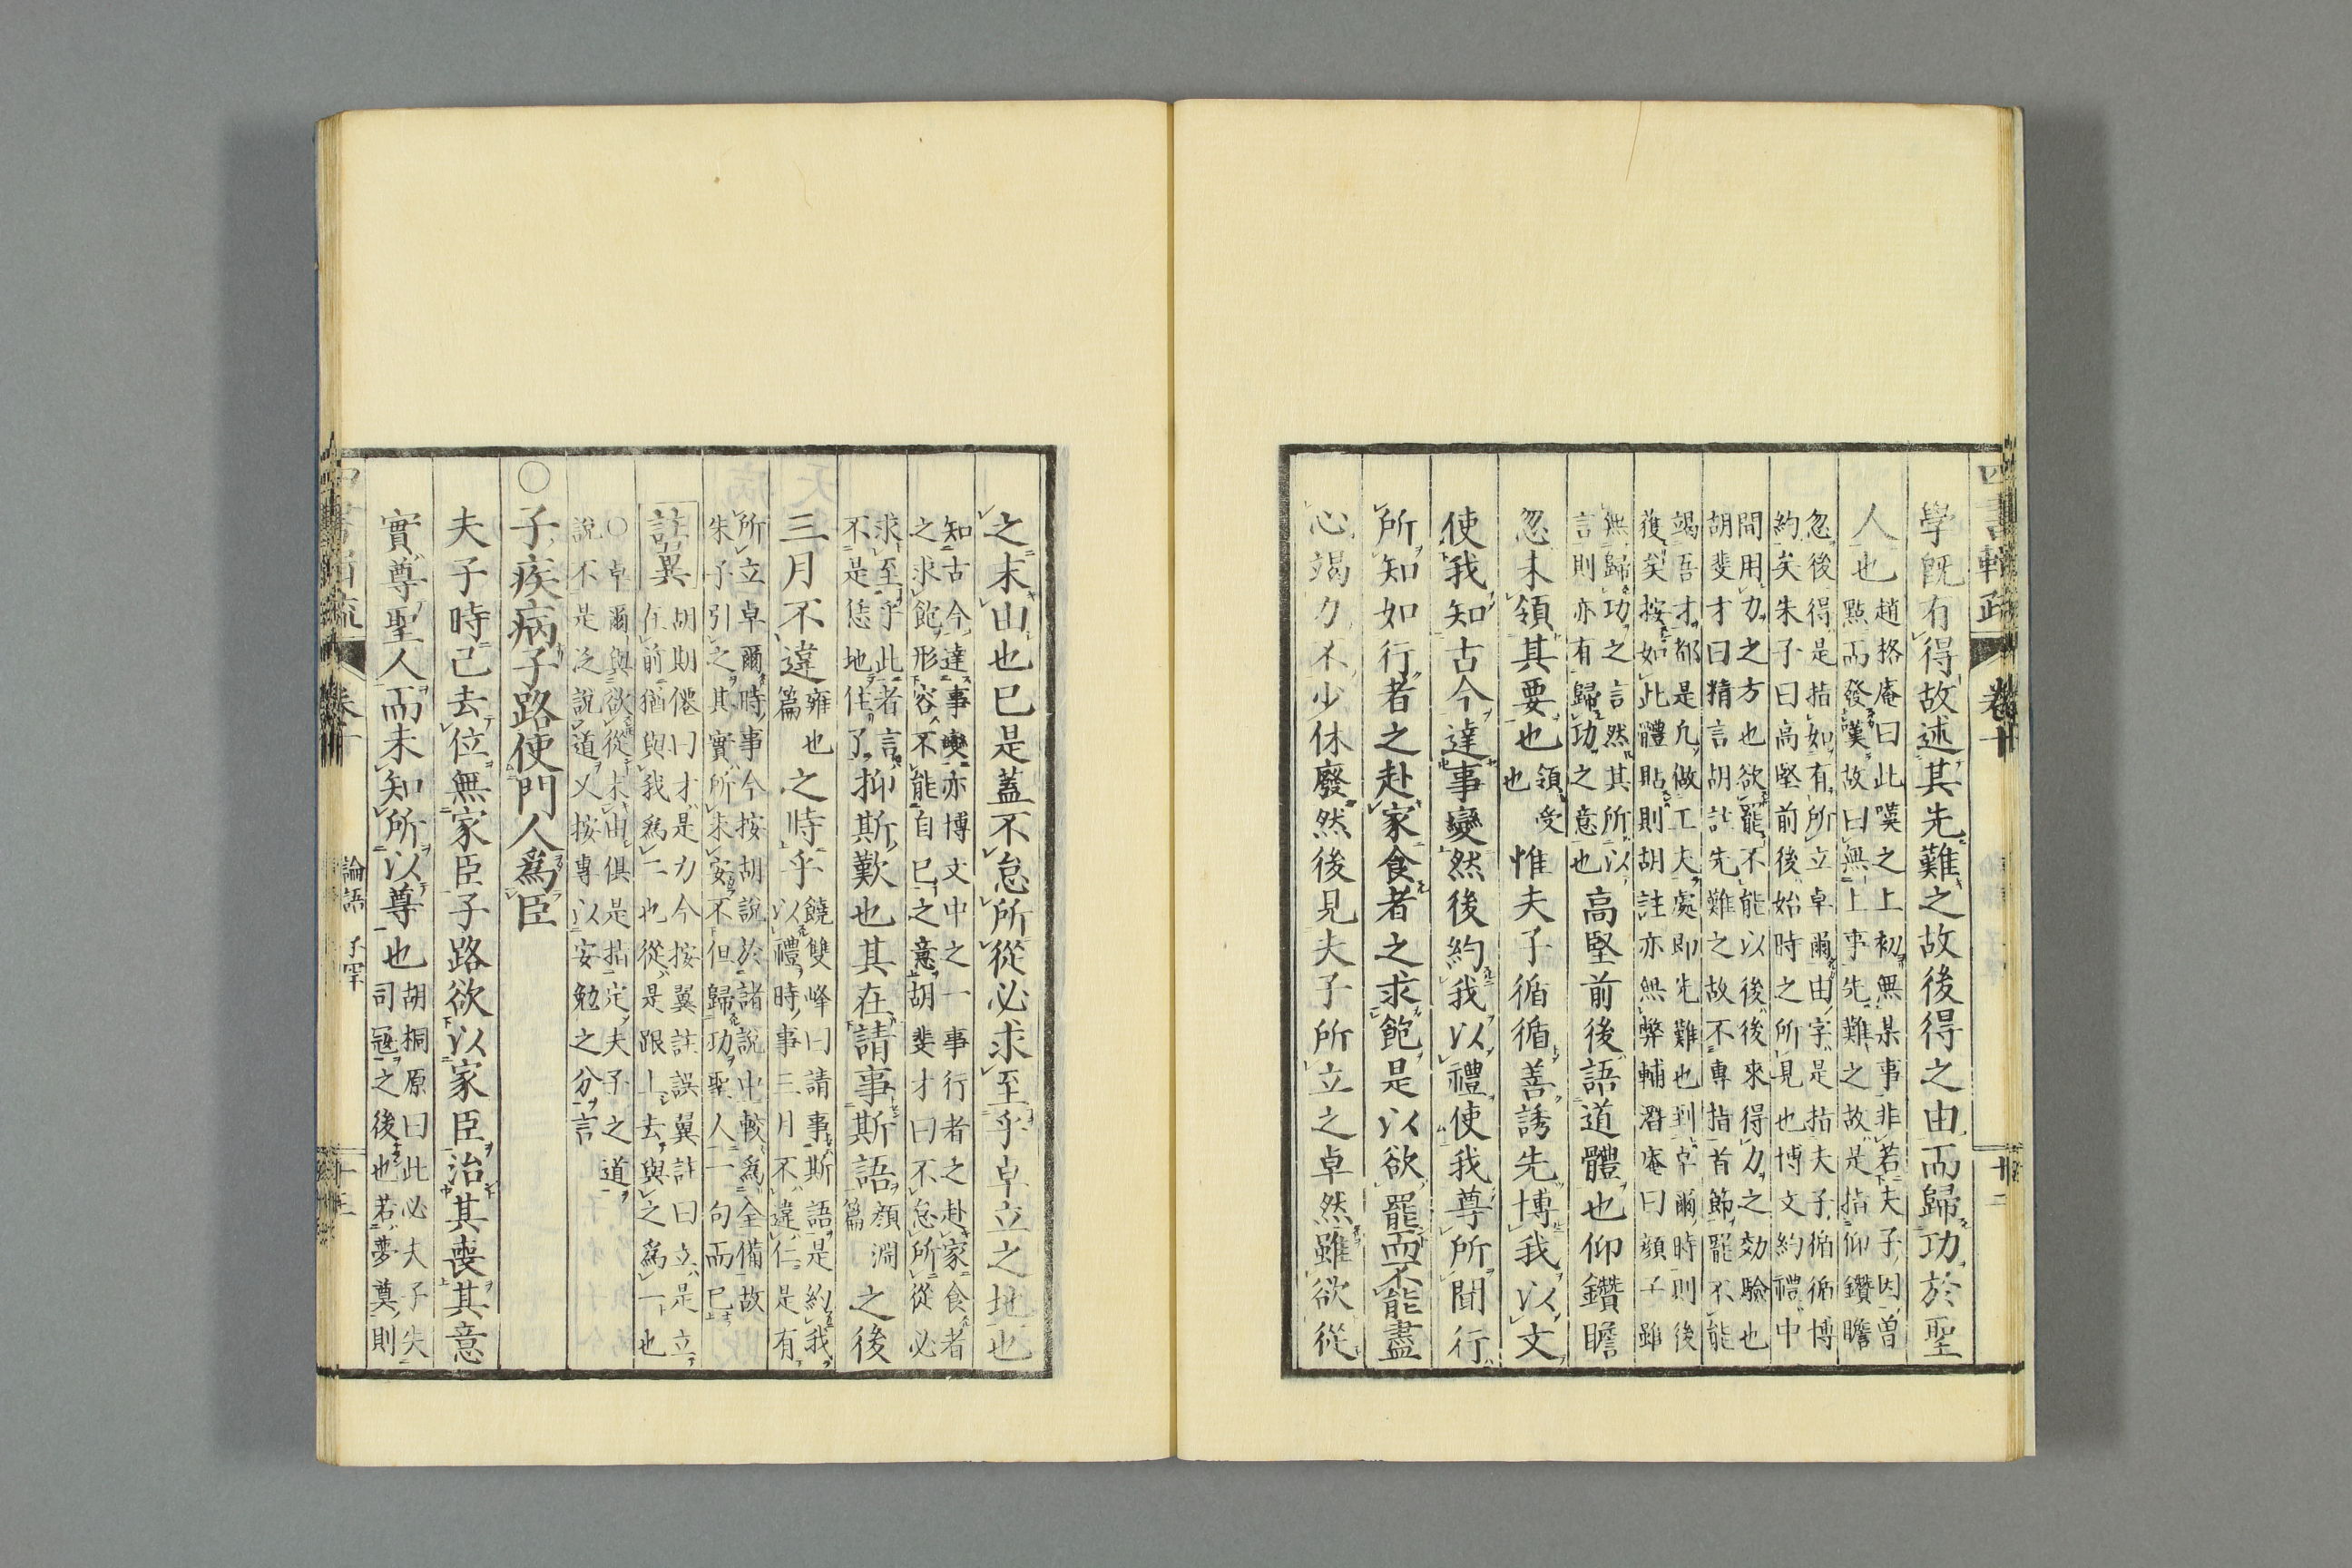 四書輯疏 卷十 十二
學既有得故述其先難之故後得之由而歸功於聖
人也
趙格庵曰此嘆之上初無某事非若夫子因曾
點而發嘆故曰無上事先難之故是指仰鑽瞻
忽後得是指如有所立卓爾由字是指夫子循循博
約矣朱子曰高堅前後始時之所見也博文約禮中
間用力之方也欲罷不能以後後來得力之効驗也
胡斐才曰精言胡註先難之故不專指首節罷不能
竭吾才都是凢做工夫處即先難也到卓爾時則後
獲矣按如此體貼則胡註亦無弊輔潛庵曰顏子雖
無歸功之言然其所以
言則亦有歸功之意也
高堅前後語道體也仰鑽瞻
忽未領其要也
領受
也
惟夫子循循善誘先博我以文
使我知古今達事變然後約我以禮使我尊所聞行
所知如行者之赴家食者之求飽是以欲罷而不能盡
心竭力不少休廢然後見夫子所立之卓然雖欲從
之末由也已是蓋不怠所從必求至乎卓立之地也
知古今達事變亦博文中之一事行者之赴家食者
之求飽形容不能自已之意胡斐才曰不怠所從必
求至乎此者言
不是恁地住了
抑斯歎也其在請事斯語
顏淵
篇
之後
三月不違
雍也
篇
之時乎
饒雙峰曰請事斯語是約我
以禮時事三月不違仁是有
所立卓爾時事今按胡說於諸說中較爲全備故
朱子引之其實所未安不但歸功聖人一句而已
註翼
胡期僊曰才是力今按翼註誤翼註曰立是立
在前猶與我爲二也從是跟上去與之爲一也
○卓爾與欲從末由俱是指定夫子之道
說不是泛說道又按專以安勉之分言
○子疾病子路使門人爲臣
夫子時已去位無家臣子路欲以家臣治其喪其意
實尊聖人而未知所以尊也
胡桐原曰此必夫子失
司寇之後也若夢奠則
論語 子罕